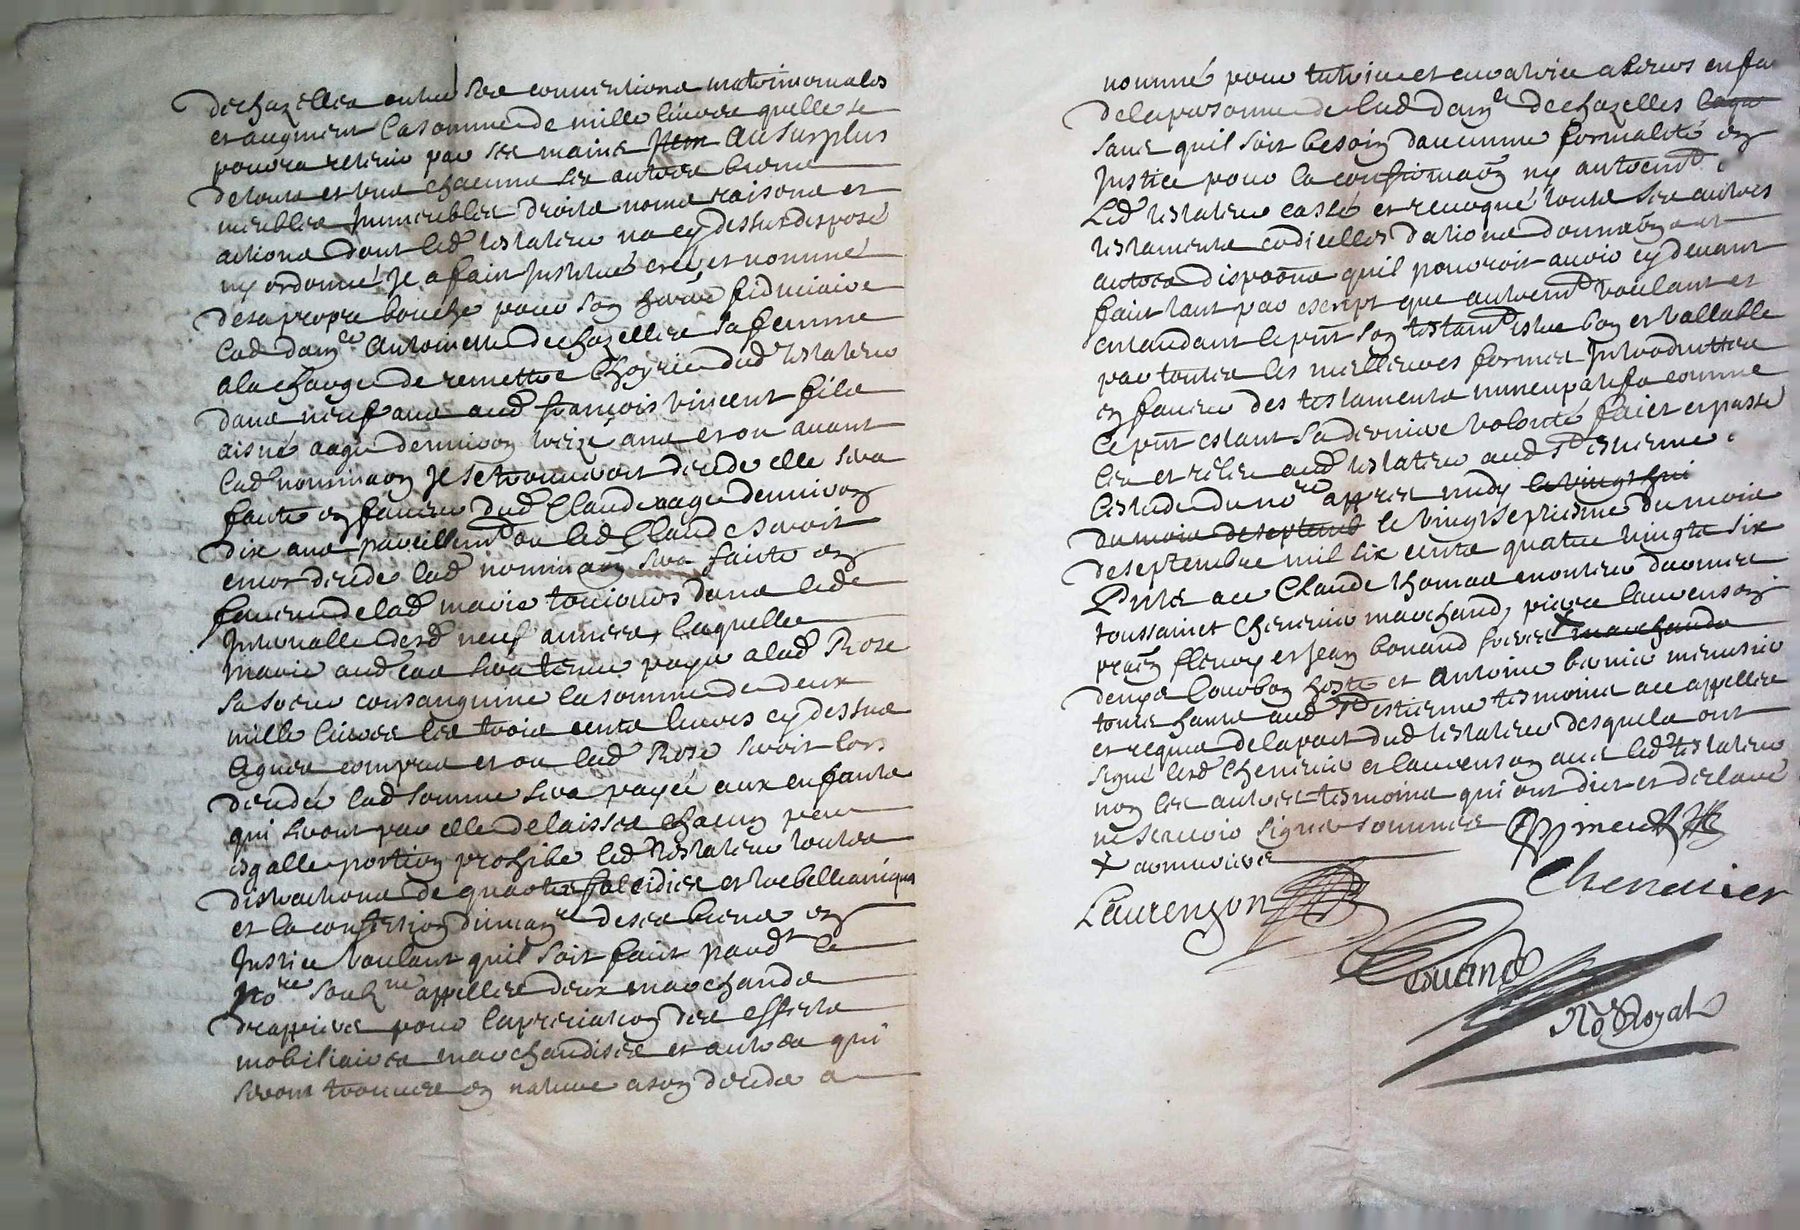 dechazelles outre ses conventions matrimoniales
et augment la somme de mille livres quelle se
pourra retenir par ses mains Item au surplus
de tous et uns chacuns ses autres biens
meubles Immeubles droits noms raisons et
actions dont led testateur na cy dessus disposé
ny ordonné Il a fait Institué créé et nommé
de sa propre bouche pour son heres fiduciaire
lad damlle Antoinette Dechazelles sa femme
a la charge de remettre lhoyrie dud testateur
dans neuf ans aud françois vincent fils
aisné aagé denviron treize ans et ou avant
lad nominaon Il se trouveroit décédé elle sera
faite en faveur dud Claude aagé denviron
dix ans pareillemt ou led Claude seroit
encor décédé lad nominaon sera faite en
faveur de lad marie toujours dans led
Intervalle desd neuf années, laquelle
marie aud cas sera tenue payer a lad Rose
sa soeur consanguine la somme de deux
mille livres les trois cents livres cy dessus
légués compris et ou lad Rose seroit lors
décédée lad somme sera payée aux enfants
qui seront par elle delaissés chacun pour
esgalle portion prohibe led testateur toutes
distractions de quartes falcidies et trebellianiques
et la confection dinvanre de ses biens en
Justice voulant quil soit fait pardt le
nore soubzné appellés deux marchands
drappiers pour lapreciation des effects
mobiliaires marchandises et autres qui
seront trouvés en nature a son décéds a
nommé pour tutrice et curatrice a leurs enfa
de la personne de lad damlle dechazelles
sans quil soit besoin daucune formalité en
Justice pour la confirmaon ny autremt
Led testateur cassé et revoqué touts ses autres
testaments codicilles dations donnaons et
autres dispoons quil pourroit avoir cy devant
fait tant par escript que autremt voulant et
entandant le pnt son testamt estre bon et vallable
par toutes les meilleures formes Introduittes
en faveur des testaments nuncupatifs comme
le pnt estant sa derniere volonté faict et passé
leu et relu aud testateur aud St Estienne
lestude du nore appres midy le vingt huit
du mois de septemb le vingt septiesme du mois
de septembre mil six cents quatre vingts six
Pnts a ce Claude thomas monteur darmes
toussainct Chenevier marchand, pierre laurenson
praen fleury et Jean bonand freres X marchands
denys courbon hoste et Antoine bernier menusier
touts hants aud St Estienne tesmoins a ce appellés
et requis de la part dud testateur desquels ont
signé lesd Chenevier et laurenson avec led testateur
non les autres tesmoins qui ont dict et declaré
ne scavoir signer sommés
X armuriers
Chenevier
Laurenzon
Nore Royal